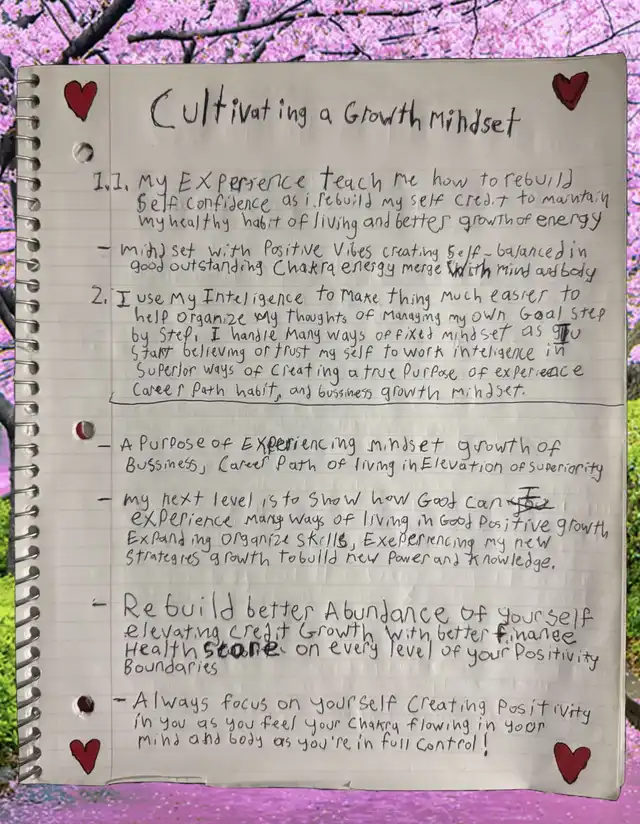 Cultivating a Growth Mindset
1.1. My Experience teach me how to rebuild
Self confidence as i rebuild my self credit to maintain
my healthy habit of living and better growth of energy
- mindset with Positive Vibes creating Self-balanced in
good outstanding Chakra energy merge with mind and body
2. I use My Intelligence to Make thing much easier to
help organize My thoughts of Managing my own Goal Step
by Step, I handle Many ways of fixed mindset as I
Start believing or trust my self to work inteligence in
Superior ways of Creating a true Purpose of experience
Career Path habit, and bussiness growth mindset.
- A Purpose of Experiencing mindset growth of
Bussiness, Career Path of living in Elevation of Superiority
- my next level is to Show how Good Can I
experience Many ways of living in Good Positive growth
Expanding organize Skills, Exeperiencing my new
Strategies growth to build new Power and Knowledge.
- Rebuild better Abundance of yourself
elevating Credit Growth with better finance
Health Store on every level of your Positivity
Boundaries
- Always focus on yourself Creating Positivity
in you as you feel your Chakra flowing in your
Mind and body as you're in full Control!